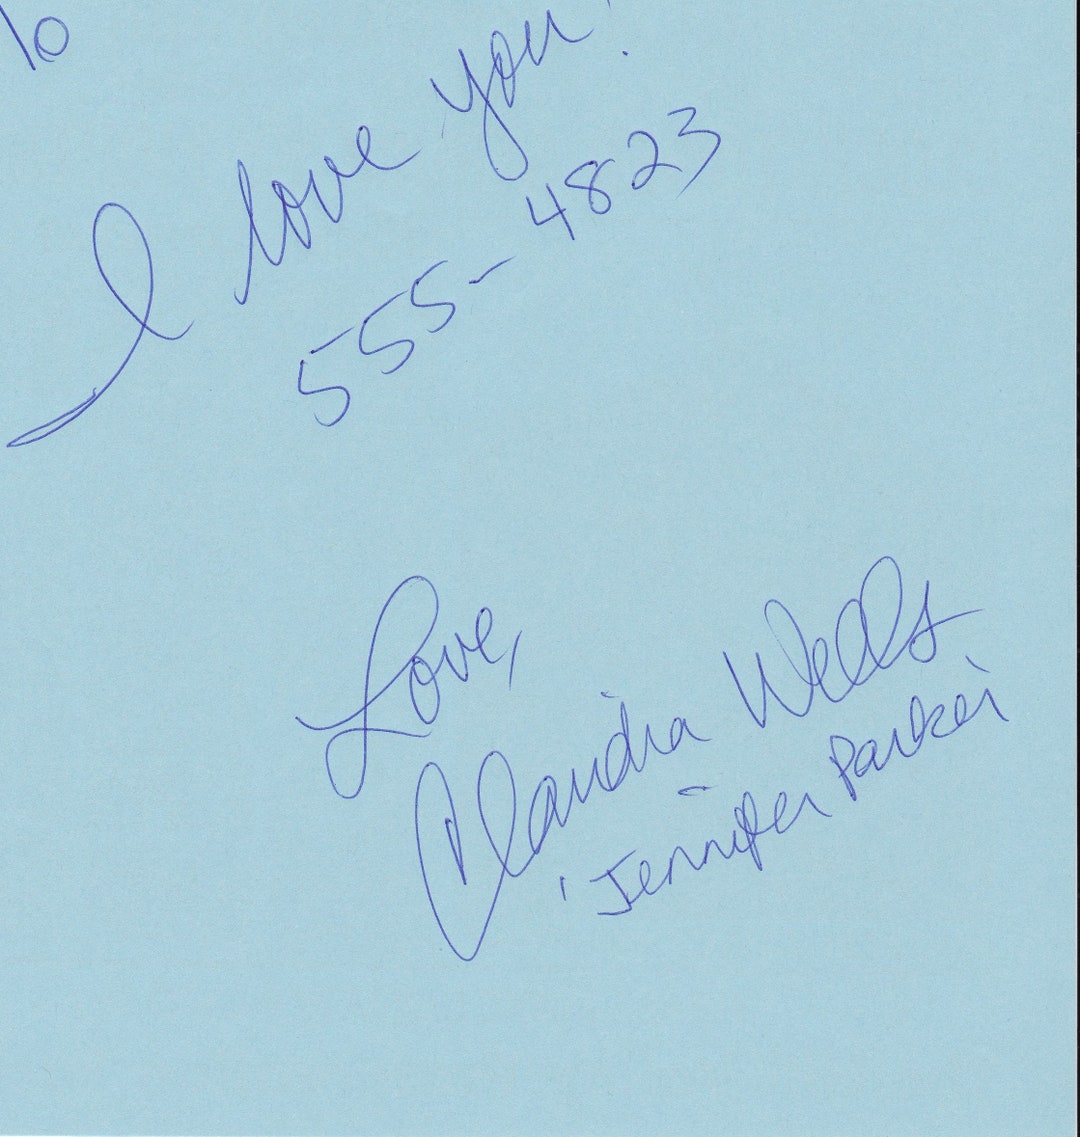 To
I love you!
555-4823
Love,
Claudia Wells
'Jennifer Parker'